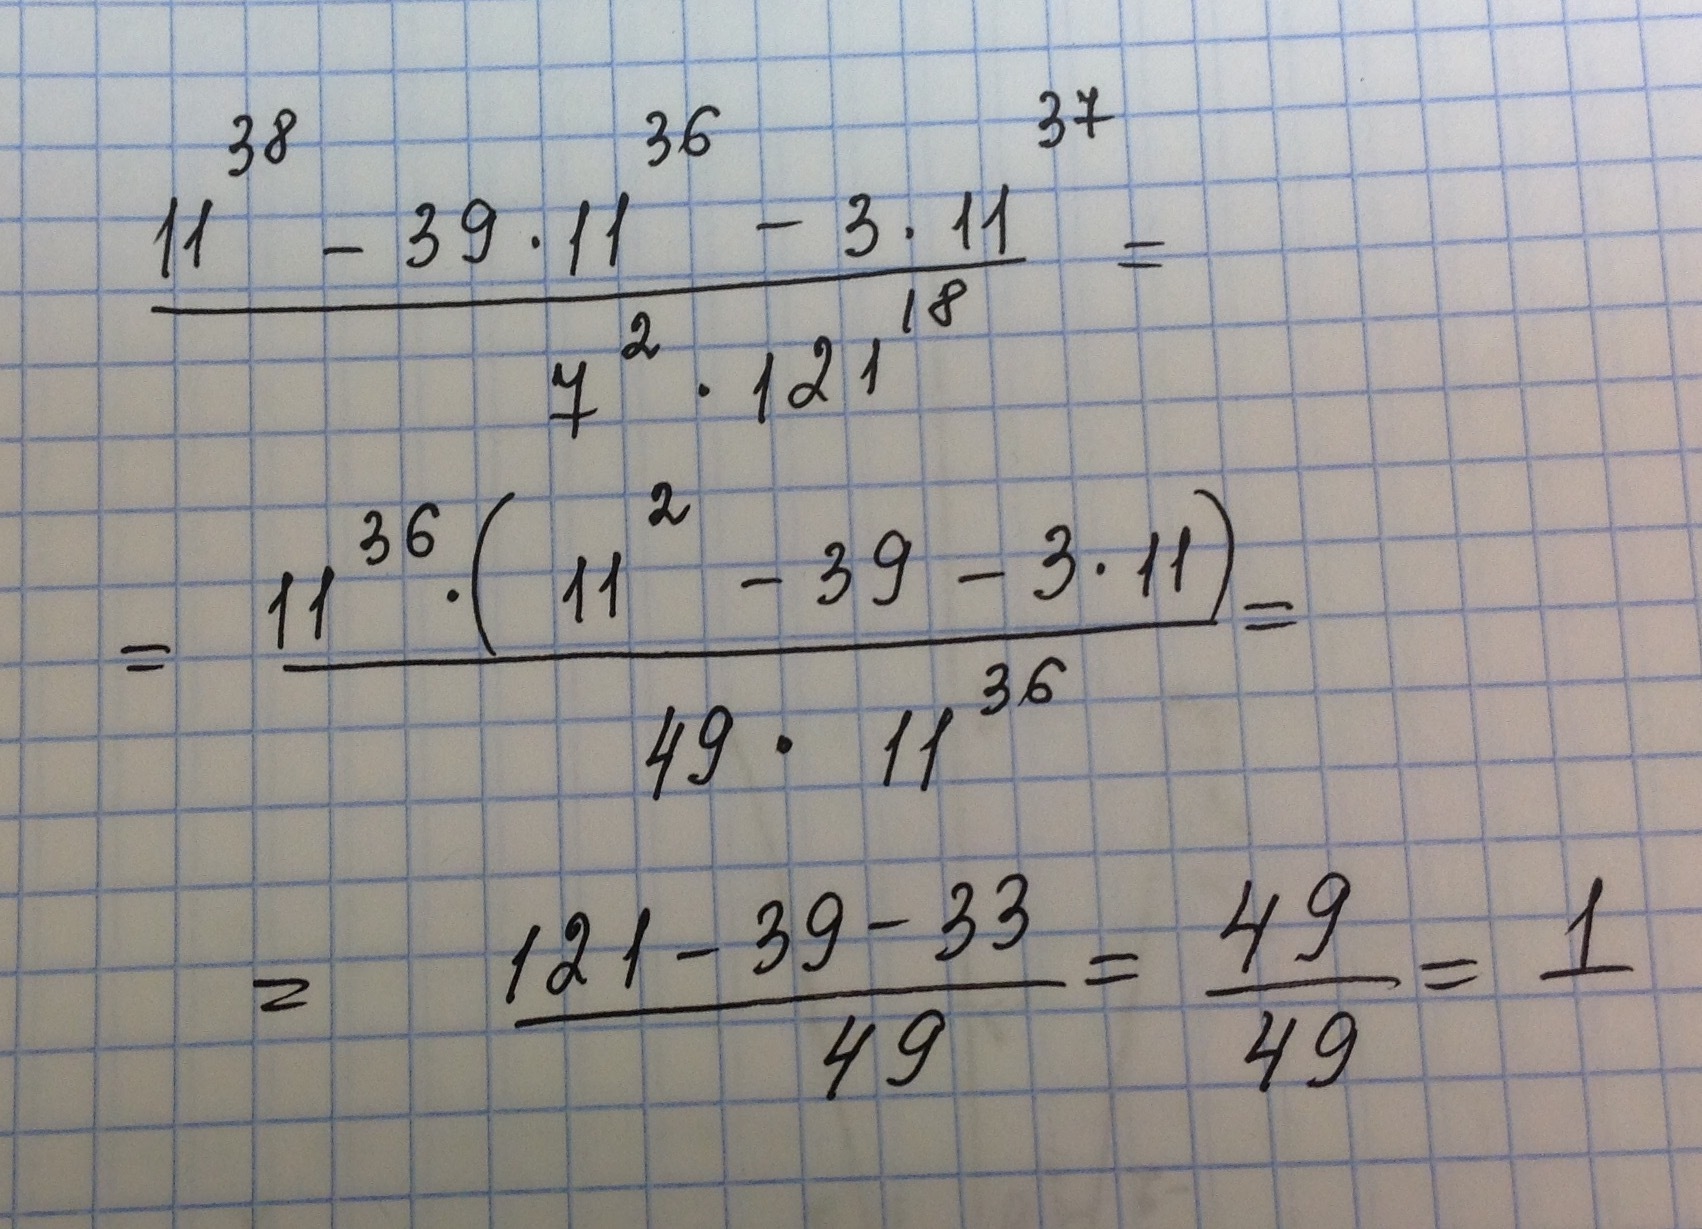 11^38 - 39 · 11^36 - 3 · 11^37 =
7^2 · 121^18
= 11^36 · (11^2 - 39 - 3 · 11) =
49 · 11^36
= 121 - 39 - 33 = 49 = 1
49 49